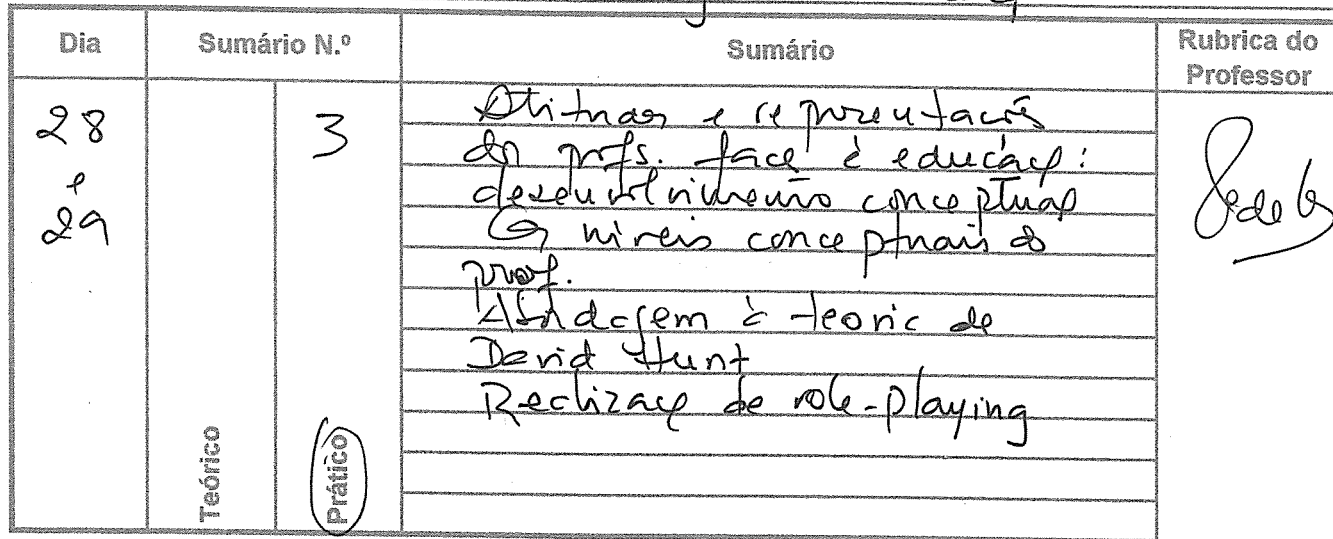 Dia
Sumário N.º
Sumário
Rubrica do
Professor
28
e
29
3
Atitudes e representações
dos profs. face à educação:
desenvolvimento conceptual
Os níveis conceptuais do
prof.
Abordagem à teoria de
David Hunt
Realização de role-playing
Teórico
Prático